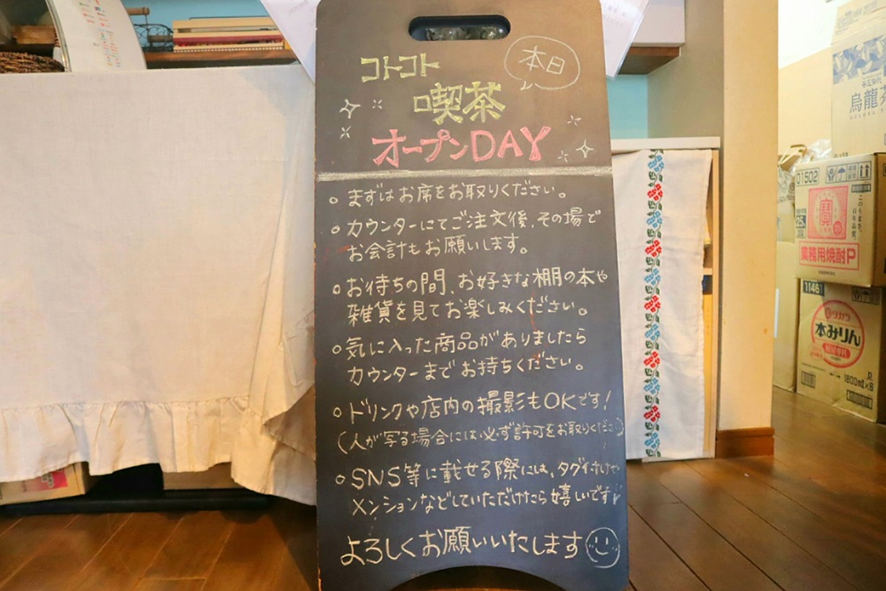 コトコト
本日
喫茶
オープンDAY
○ まずはお席をお取りください。
○ カウンターにてご注文後、その場で
お会計もお願いします。
○ お待ちの間、お好きな棚の本や
雑貨を見てお楽しみください。
○ 気に入った商品がありましたら
カウンターまでお持ちください。
○ ドリンクや店内の撮影もOKです!
(人が写る場合には必ず許可をお取りください)
○ SNS等に載せる際には、タグ付けや
メンションなどしていただけたら嬉しいです
よろしくお願いいたします
烏龍茶
01502
寶
業務用焼酎P
1146
タカラ
本みりん
1800ml×6